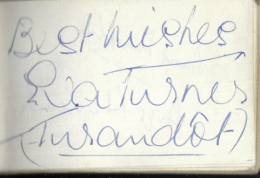 Best wishes
Lia Turner
(Turandôt)